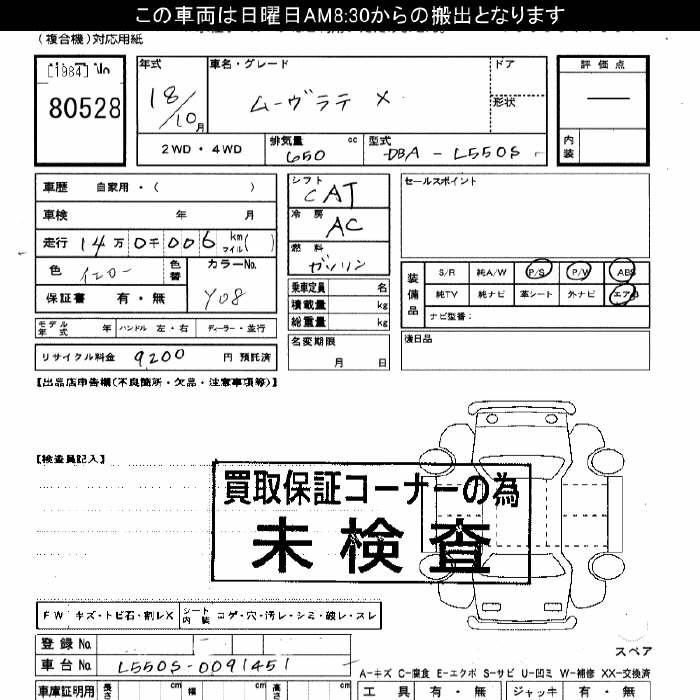 この車両は日曜日AM8:30からの搬出となります
(複合機)対応用紙
[1984] No
80528
年式 車名・グレード ドア
18/10月 ムーヴラテ X 形状
評価点
—
内装
2WD・4WD 排気量 cc 型式
650 DBA - L550S
車歴 自家用・( )
車検 年 月
走行 14万0千006 km マイル( )
色 イエロー 色替 カラーNo.
保証書 有・無 Y08
モデル年式 年 ハンドル 左・右 ディーラー・並行
リサイクル料金 9200 円 預託済
シフト CAT
冷房 AC
燃料 ガソリン
乗車定員 名
積載量 kg
総重量 kg
名変期限
月 日
セールスポイント
装備品
S/R 純A/W P/S P/W ABS
純TV 純ナビ 革シート 外ナビ エアB
ナビ型番:
後日品
【出品店申告欄(不良箇所・欠品・注意事項等)】
【検査員記入】
買取保証コーナーの為
未検査
FW キズ・トビ石・割レX シート内装 コゲ・穴・汚レ・シミ・破レ・スレ
登録No.
車台No. L550S-0091451
スペア
A-キズ C-腐食 E-エクボ S-サビ U-凹ミ W-補修 XX-交換済
車庫証明用 長さ cm 幅 cm 高さ cm
工具 有・無 ジャッキ 有・無